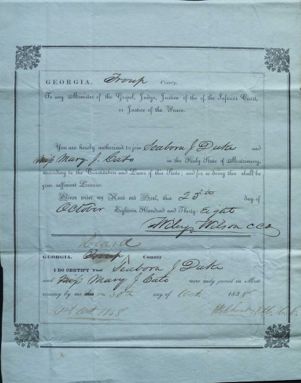 GEORGIA, Troup County.
To any Minister of the Gospel, Judge, Justice of the of the Inferior Court,
or Justice of the Peace.
You are hereby authorized to join Seaborn J Duke and
Miss Mary J. Cato in the Holy State of Matrimony,
according to the Constitution and Laws of this State; and for so doing this shall be
your sufficient License.
Given under my Hand and Seal, this 25th day of
October Eighteen Hundred and Thirty Eight
Wiley Wilson CCO
Heard
GEORGIA, Troup County
I DO CERTIFY that Seaborn J Duke
and Miss Mary J Cato were duly joined in Matrimony
by me this 30th day of Oct 1838